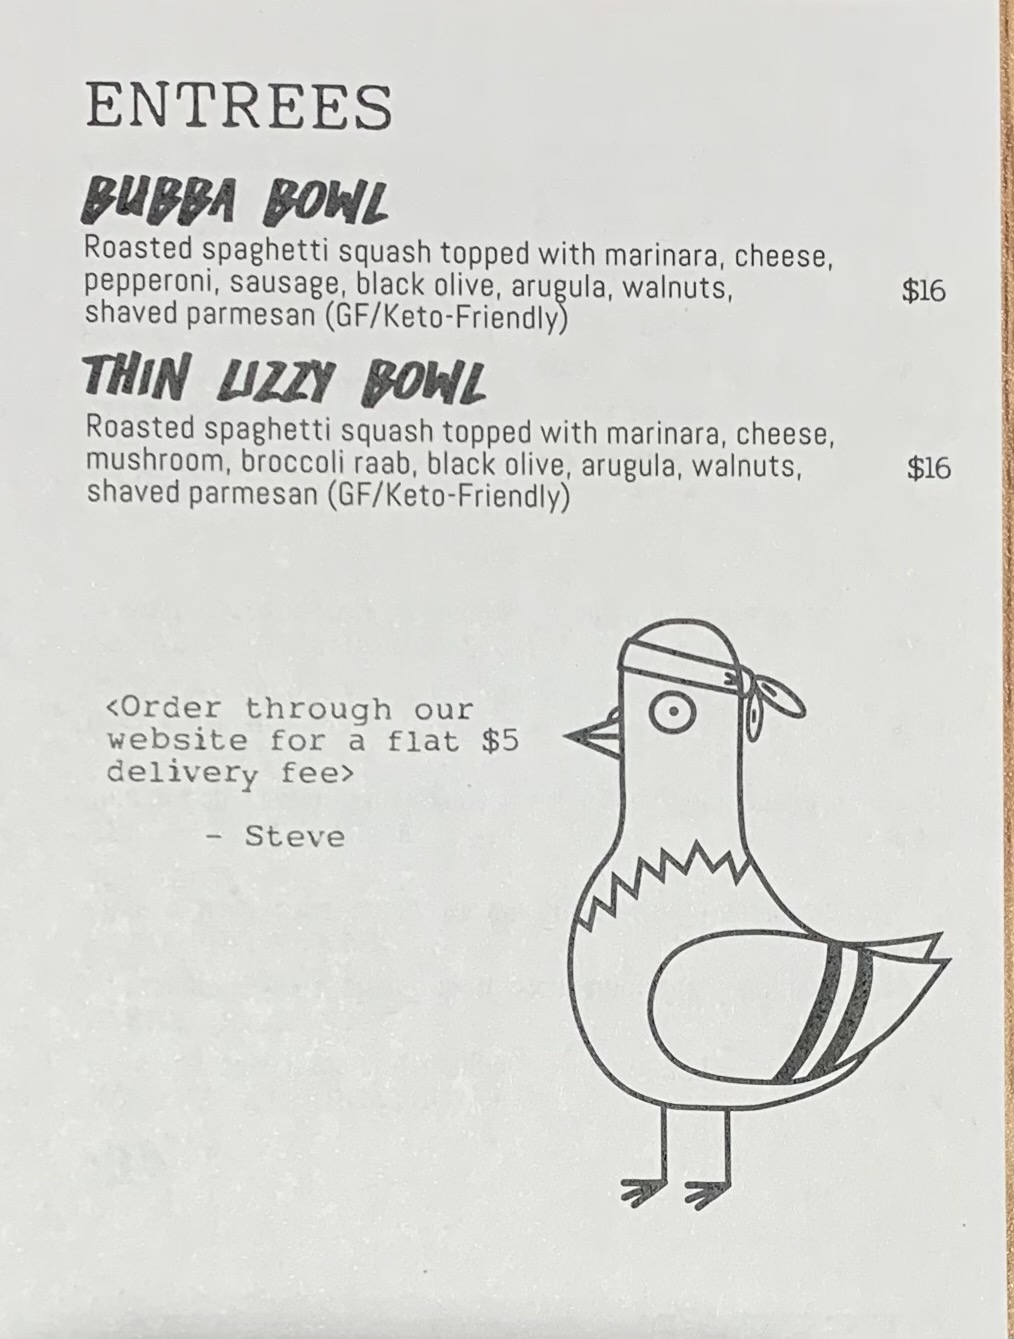 ENTREES
BUBBA BOWL
Roasted spaghetti squash topped with marinara, cheese,
pepperoni, sausage, black olive, arugula, walnuts, $16
shaved parmesan (GF/Keto-Friendly)
THIN LIZZY BOWL
Roasted spaghetti squash topped with marinara, cheese,
mushroom, broccoli raab, black olive, arugula, walnuts, $16
shaved parmesan (GF/Keto-Friendly)
<Order through our
website for a flat $5
delivery fee>
– Steve